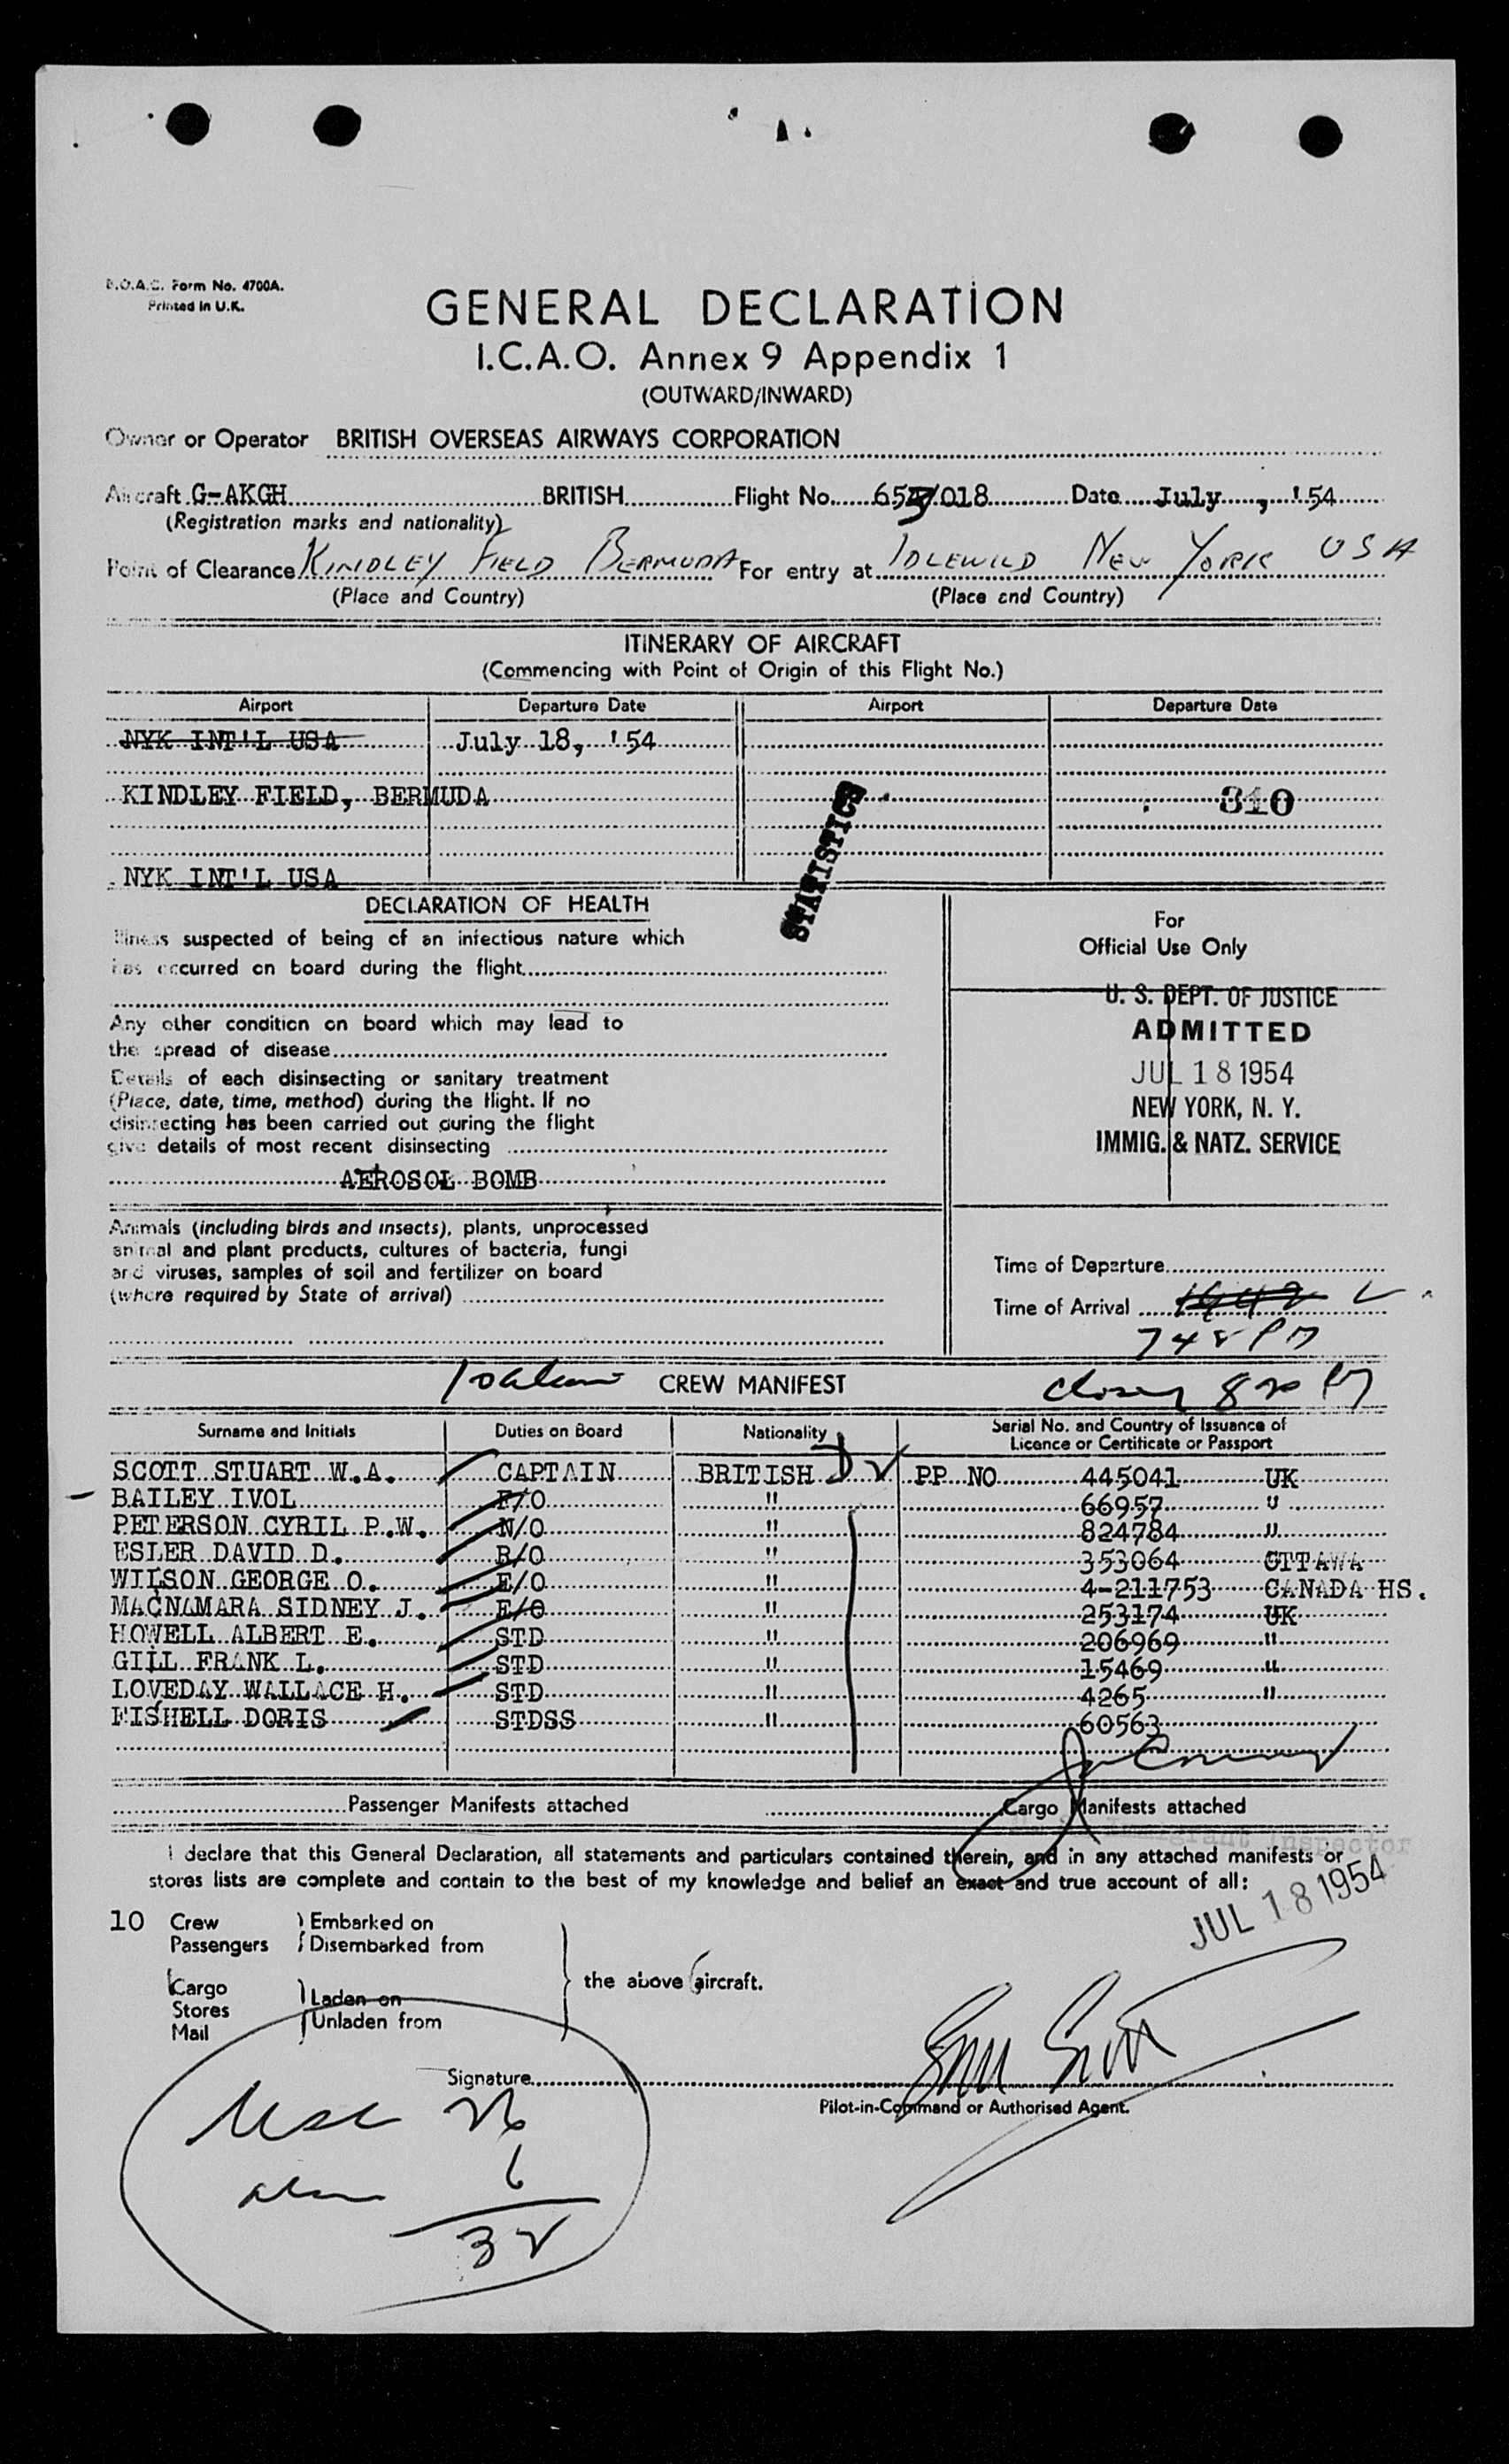 B.O.A.C. Form No. 4700A.
Printed in U.K.
GENERAL DECLARATION
I.C.A.O. Annex 9 Appendix 1
(OUTWARD/INWARD)
Owner or Operator BRITISH OVERSEAS AIRWAYS CORPORATION
Aircraft G-AKGH BRITISH Flight No. 655/018 Date July , '54
(Registration marks and nationality)
Point of Clearance KINDLEY FIELD BERMUDA For entry at IDLEWILD NEW YORK USA
(Place and Country) (Place and Country)
ITINERARY OF AIRCRAFT
(Commencing with Point of Origin of this Flight No.)
Airport Departure Date Airport Departure Date
NYK INT'L USA July 18, '54
KINDLEY FIELD, BERMUDA 310
STATISTICS
NYK INT'L USA
DECLARATION OF HEALTH
Illness suspected of being of an infectious nature which
has occurred on board during the flight
Any other condition on board which may lead to
the spread of disease
Details of each disinsecting or sanitary treatment
(Place, date, time, method) during the flight. If no
disinsecting has been carried out during the flight
give details of most recent disinsecting
AEROSOL BOMB
For
Official Use Only
U. S. DEPT. OF JUSTICE
ADMITTED
JUL 18 1954
NEW YORK, N. Y.
IMMIG. & NATZ. SERVICE
Animals (including birds and insects), plants, unprocessed
animal and plant products, cultures of bacteria, fungi
and viruses, samples of soil and fertilizer on board
(where required by State of arrival)
Time of Departure
Time of Arrival 1942 L
748 PM
CREW MANIFEST
Surname and Initials Duties on Board Nationality Serial No. and Country of Issuance of
Licence or Certificate or Passport
SCOTT STUART W.A. CAPTAIN BRITISH P.P. NO 445041 UK
BAILEY IVOL F/O " 66957 "
PETERSON CYRIL P.W. N/O " 824784 "
ESLER DAVID D. R/O " 353064 OTTAWA
WILSON GEORGE O. E/O " 4-211753 CANADA HS.
MACNAMARA SIDNEY J. E/O " 253174 UK
HOWELL ALBERT E. STD " 206969 "
GILL FRANK L. STD " 15469 "
LOVEDAY WALLACE H. STD " 4265 "
FISHELL DORIS STDSS " 60563
Passenger Manifests attached Cargo Manifests attached
Immigrant Inspector
I declare that this General Declaration, all statements and particulars contained therein, and in any attached manifests or
stores lists are complete and contain to the best of my knowledge and belief an exact and true account of all:
JUL 18 1954
10 Crew Embarked on
Passengers Disembarked from
the above aircraft.
Cargo Laden on
Stores
Mail Unladen from
Signature
Pilot-in-Command or Authorised Agent.
26
6
32